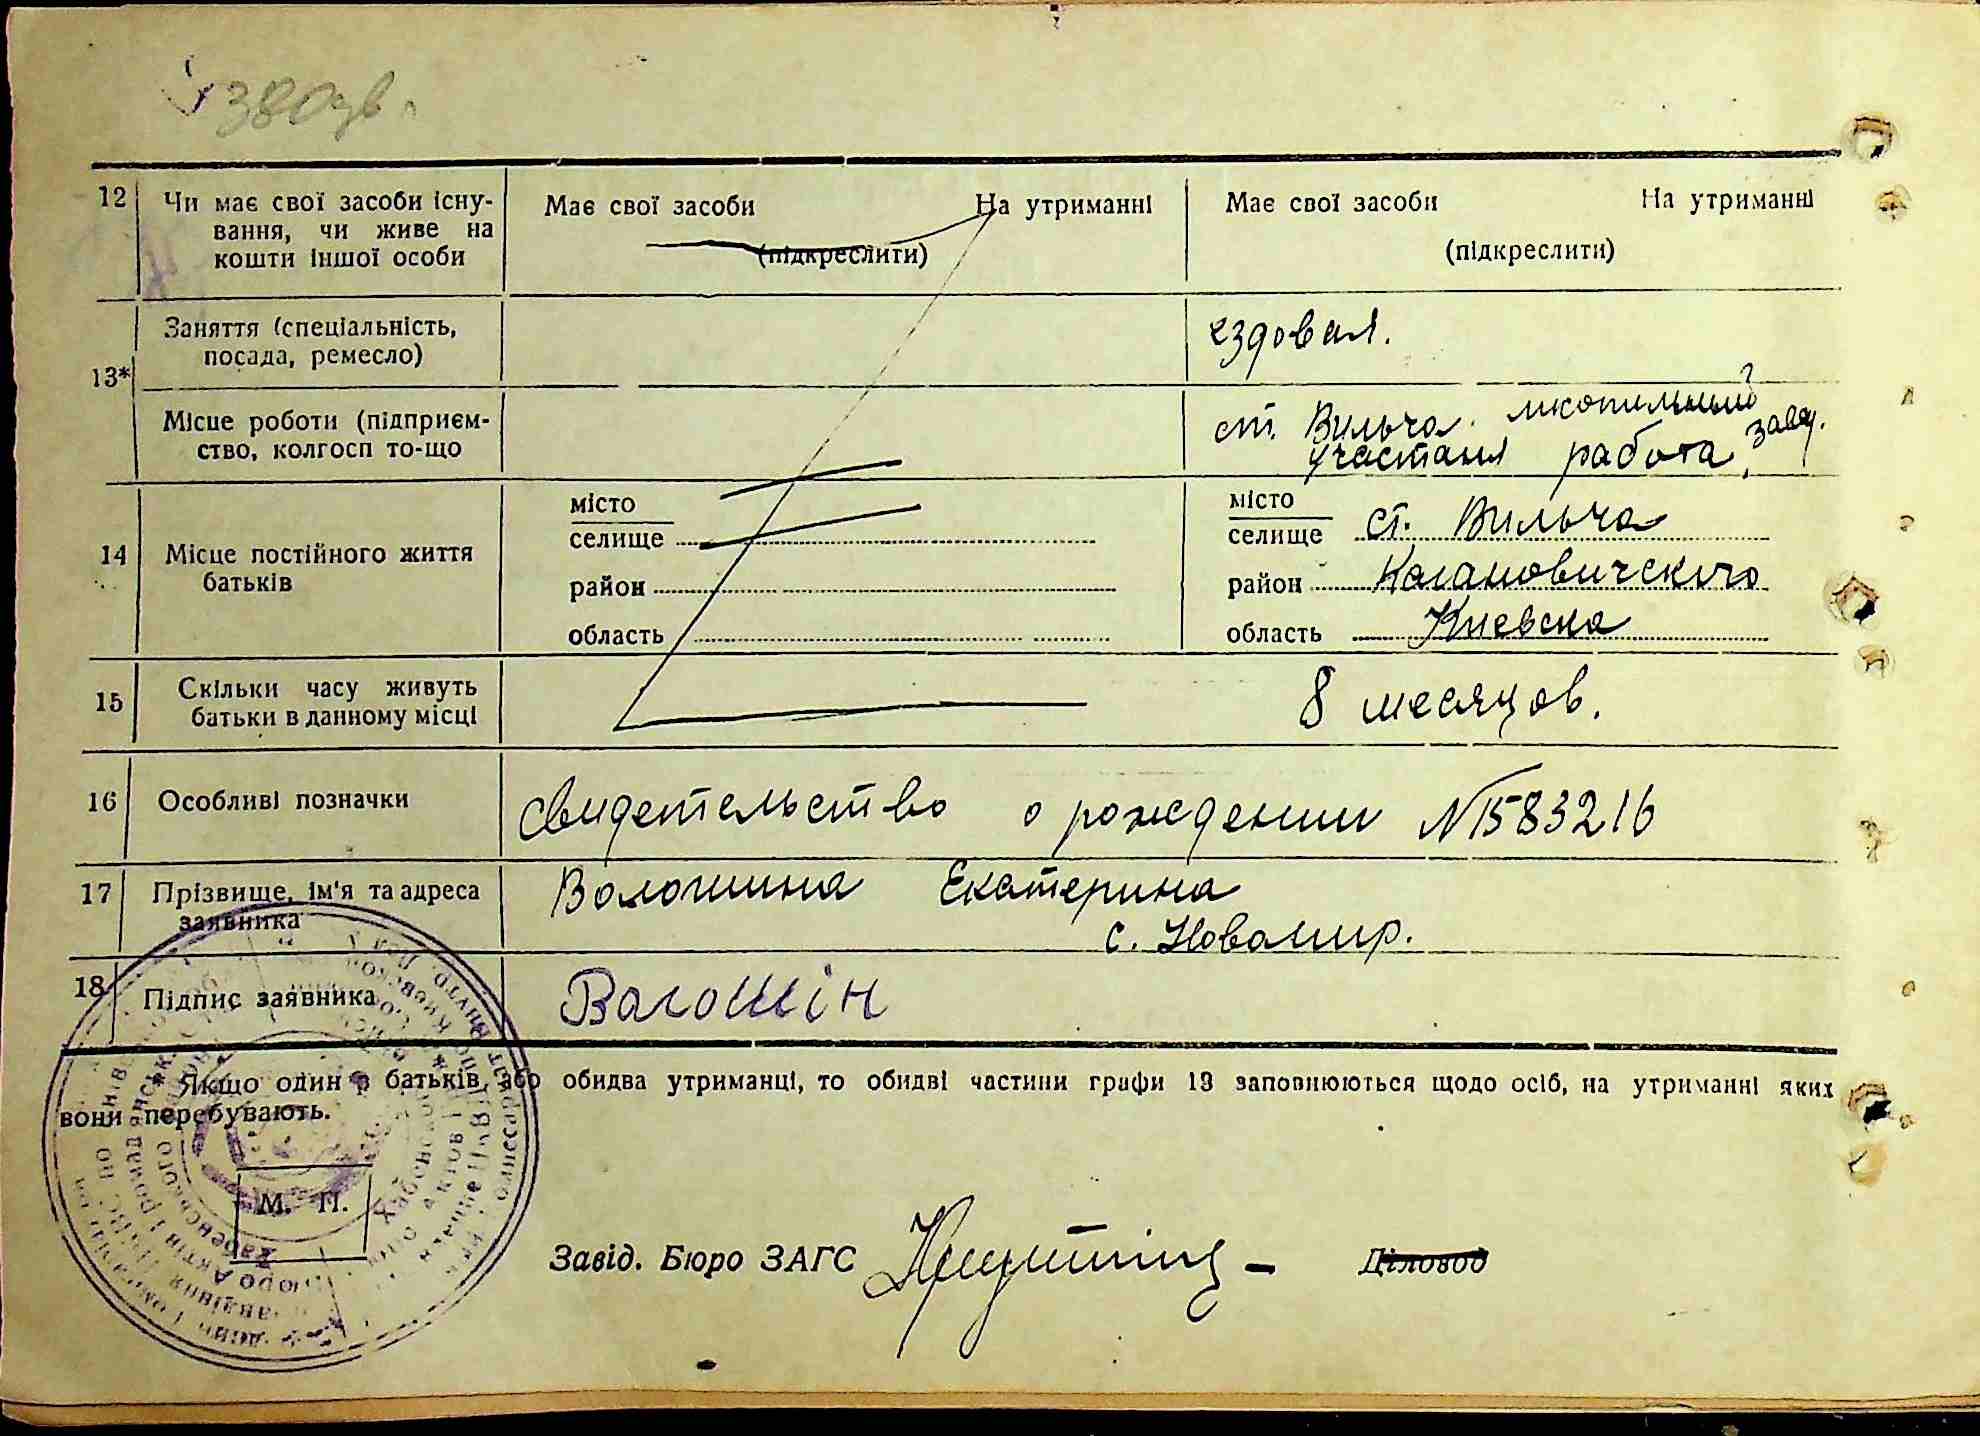 12 Чи має свої засоби існу-
вання, чи живе на
кошти іншої особи
Має свої засоби На утриманні
(підкреслити)
Має свої засоби На утриманні
(підкреслити)
13*
Заняття (спеціальність,
посада, ремесло)
ездовая.
Місце роботи (підприєм-
ство, колгосп то-що
ст. Вильча.
работа
14 Місце постійного життя
батьків
місто
селище
район
область
місто
селище ст. Вильча
район Кагановичского
область Киевска
15 Скільки часу живуть
батьки в данному місці
8 месяцов.
16 Особливі позначки
свидетельство о рождении №1583216
17 Прізвище, ім'я та адреса
заявника
Волошина Екатерина
с. Новомир.
18 Підпис заявника
Вагошін
Якщо один з батьків, або обидва утриманці, то обидві частини графи 13 заповнюються щодо осіб, на утриманні яких
вони перебувають.
М. П.
Завід. Бюро ЗАГС
Діловод